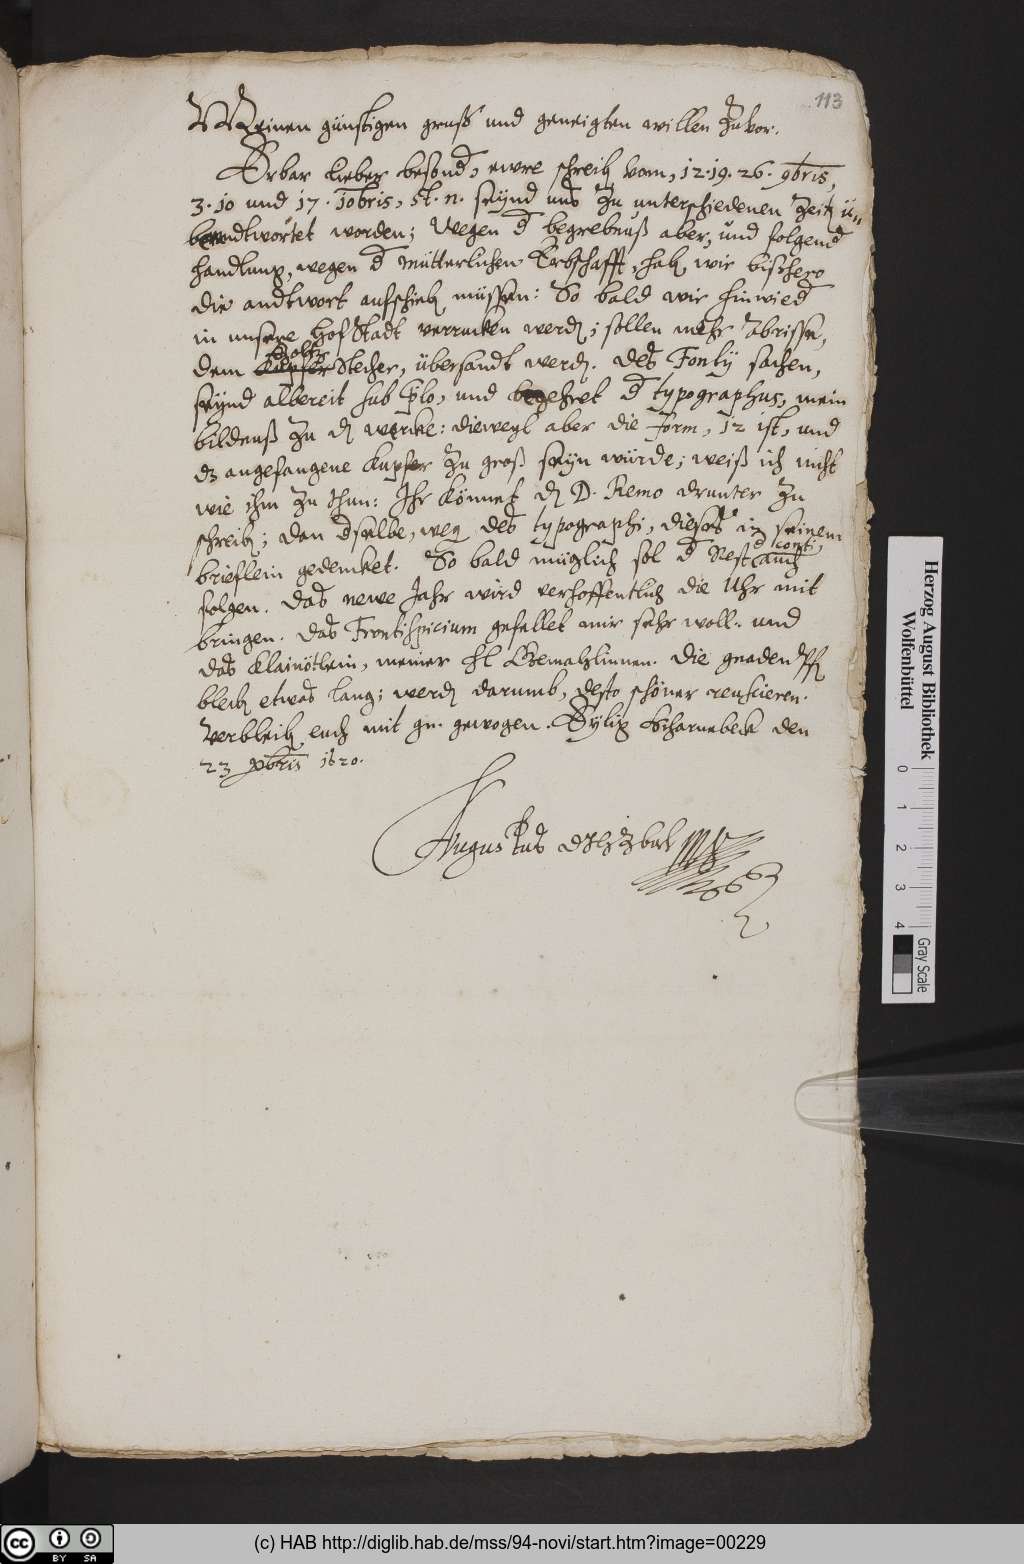 113
Meinen günstigen gruß und geneigten willen Zuvor.
Erbar lieber besond, ewre schreib vom, 12. 19. 26. 9bris,
3. 10 und 17. 10bris, st. n. seynd uns zu unterschiedenen Zeit ü-
berandtwortet worden; Wegen d begrebnuß aber, und folgend
handlung, wegen d Mütterlichen Erbschafft, hab wir bishero
die andtwort aufschieb müssen: So bald wir hinwied
in unsere Hof Stadt verrucken werd; sollen mehr Abrisse,
Holtz
dem Kupfer Stecher, übersandt werd. Des Fontÿ sachen,
seynd albereit sub prlo, und begehret d typographus, mein
bildnuß zu d wercke: dieweyl aber die form, 12 ist, und
dz angefangene Kupfer zu groß seyn würde; weiß ich nicht
wie ihm zu thun: Ihr könnet d D. Remo drunter zu
schreib; den dselbe, weg des typographi, dieses in seinem
brieflein gedencket. So bald müglich sol d Rest d conti, auch
folgen. Das newe Jahr wird verhoffentlich die Uhr mit
bringen. Das Frontispicium gefellet mir sehr woll. und
das Klainötlein, meiner hl Gemahlinnen. Die gnaden
bleib etwas lang; werd darumb, desto schöner
Verbleib euch mit gn. gewogen. Eylig Scharnebeck den
23 Xbris 1620.
Augustus
Herzog August Bibliothek
Wolfenbüttel
0 1 2 3 4
Gray Scale
cc BY SA
(c) HAB http://diglib.hab.de/mss/94-novi/start.htm?image=00229